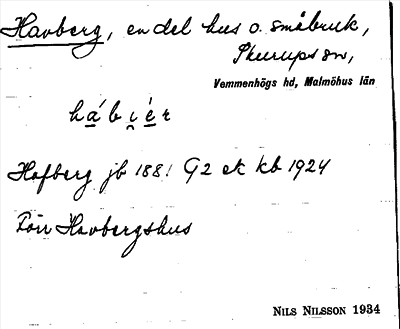 Havberg, en del hus o. småbruk,
Skurups sn,
Vemmenhögs hd, Malmöhus län
hábįér
Hafberg jb 1881 G2 ek kb 1924
Förr Havbergshus
NILS NILSSON 1934